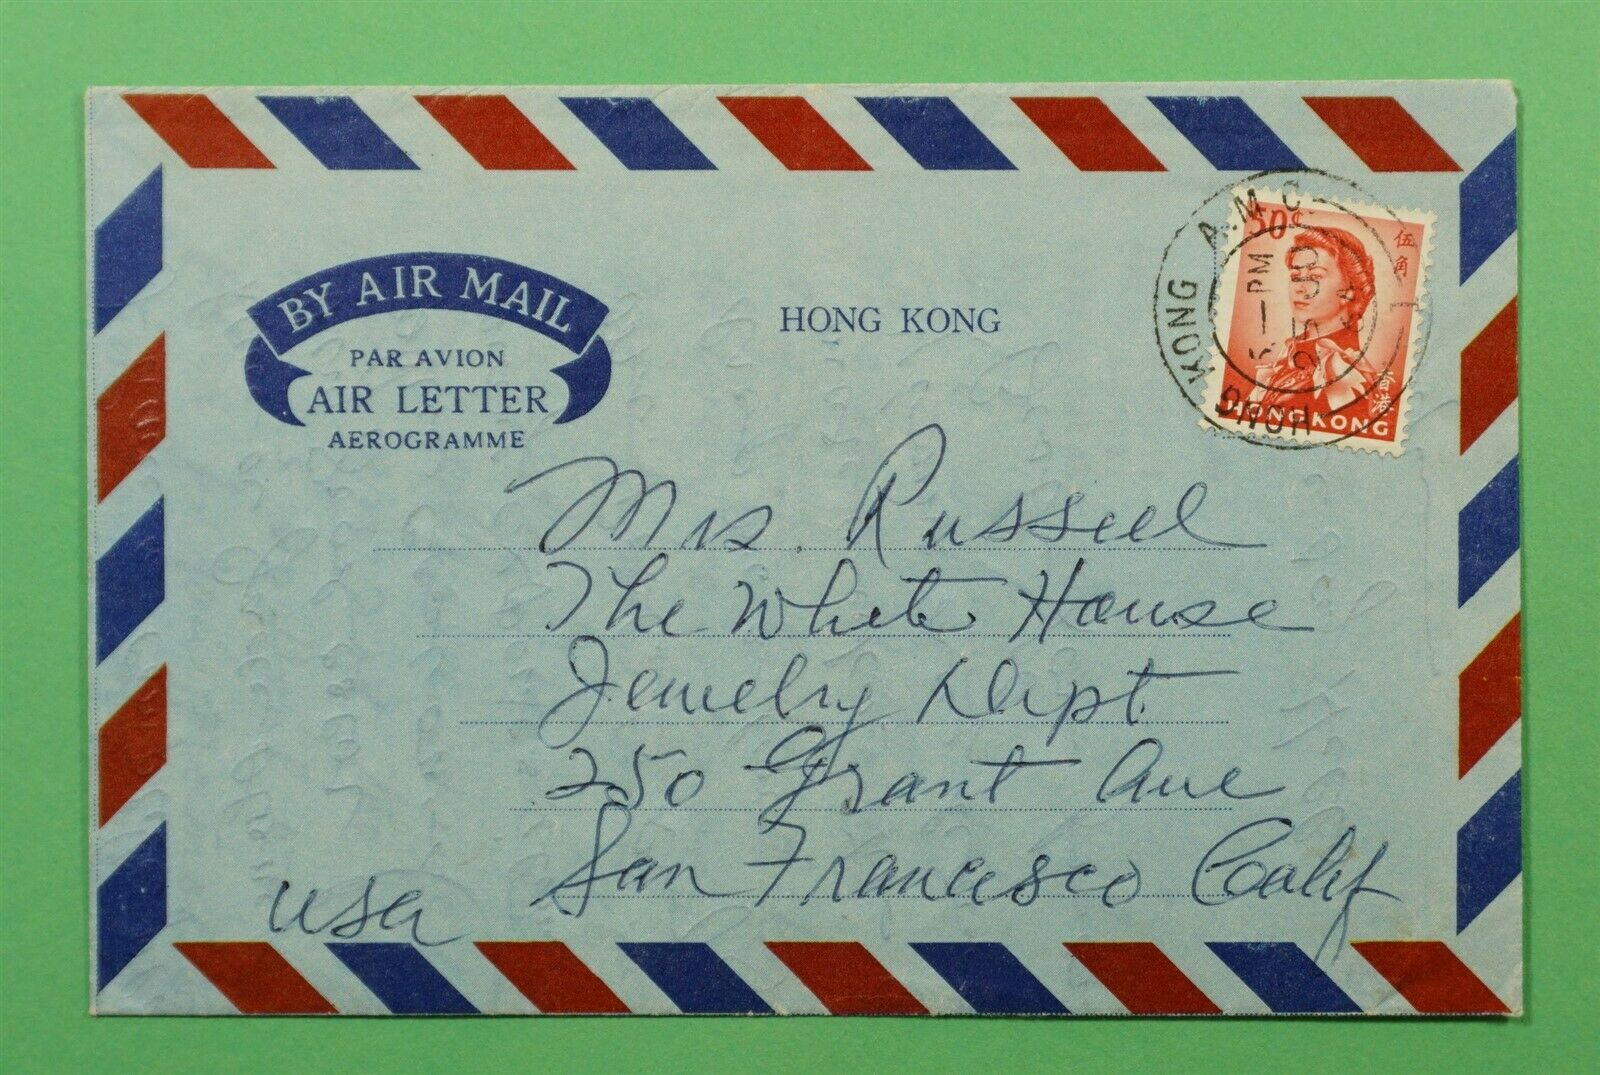 BY AIR MAIL
PAR AVION
AIR LETTER
AEROGRAMME
HONG KONG
50¢
伍角
香港
HONG KONG
HONG KONG A.M.C. 1
PM
25 JU
64
Mrs. Russell
The White House
Jewelry Dept
250 Grant Ave
San Francisco Calif
USA